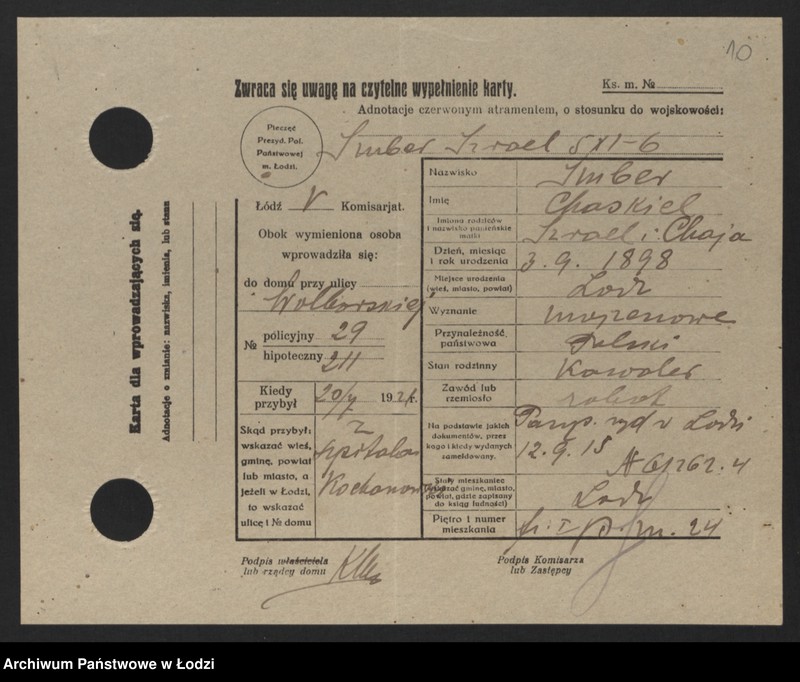 10
Zwraca się uwagę na czytelne wypełnienie karty.
Ks. m. №
Adnotacje czerwonym atramentem, o stosunku do wojskowości:
Pieczęć
Prezyd. Pol.
Państwowej
m. Łodzi.
Imber Izrael
Łódź V Komisarjat.
Obok wymieniona osoba
wprowadziła się:
do domu przy ulicy
Wolborskiej
№ policyjny 29
hipoteczny 211
Kiedy przybył 20/V 1924 r.
Skąd przybył:
wskazać wieś,
gminę, powiat
lub miasto, a
jeżeli w Łodzi,
to wskazać
ulicę i № domu
z
szpitala
Nazwisko Imber
Imię Chaskiel
Imiona rodziców
i nazwisko panieńskie
matki
Izrael i Chaja
Dzień, miesiąc
i rok urodzenia
3. 9. 1898
Miejsce urodzenia
(wieś, miasto, powiat)
Łodz
Wyznanie mojżeszowe
Przynależność
państwowa
Polski
Stan rodzinny Kawaler
Zawód lub
rzemiosło
robot
Na podstawie jakich
dokumentów, przez
kogo i kiedy wydanych
zameldowany.
Pasp. w Łodzi
12. 9. 15
Stały mieszkaniec
(wskazać gminę, miasto,
powiat, gdzie zapisany
do ksiąg ludności)
Łodz
Piętro i numer
mieszkania
m. 24
Podpis właściciela
lub rządcy domu
Podpis Komisarza
lub Zastępcy
Karta dla wprowadzających się.
Adnotacje o zmianie: nazwiska, imienia, lub stanu
Archiwum Państwowe w Łodzi